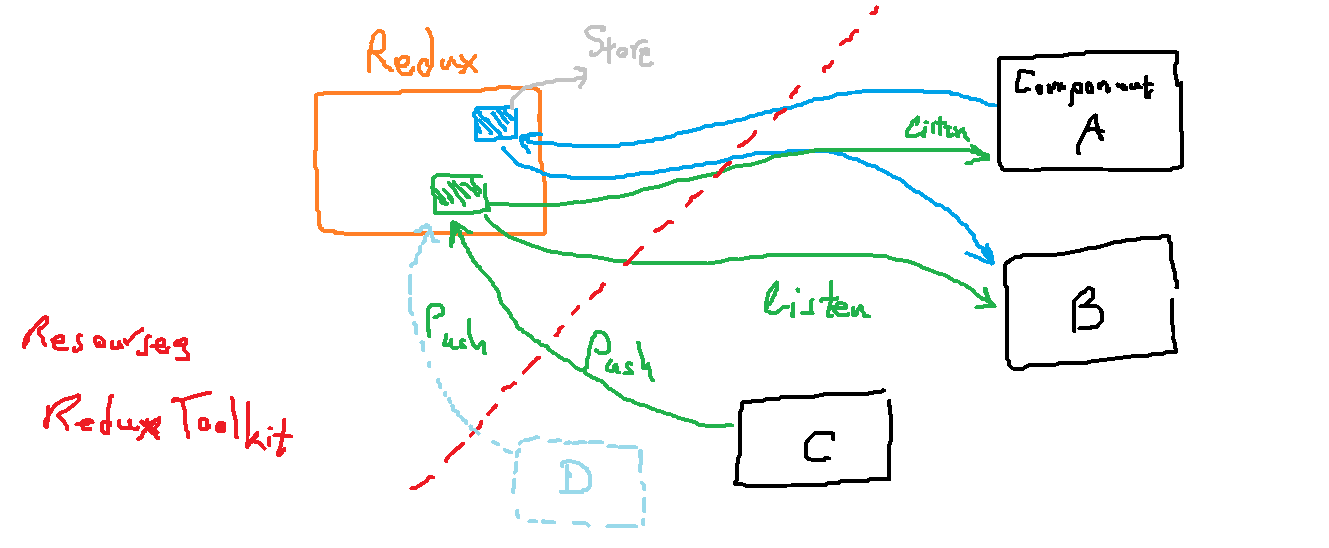 Redux
Store
Component
A
Listen
B
Listen
Push
Push
Resourses
Redux Toolkit
C
D